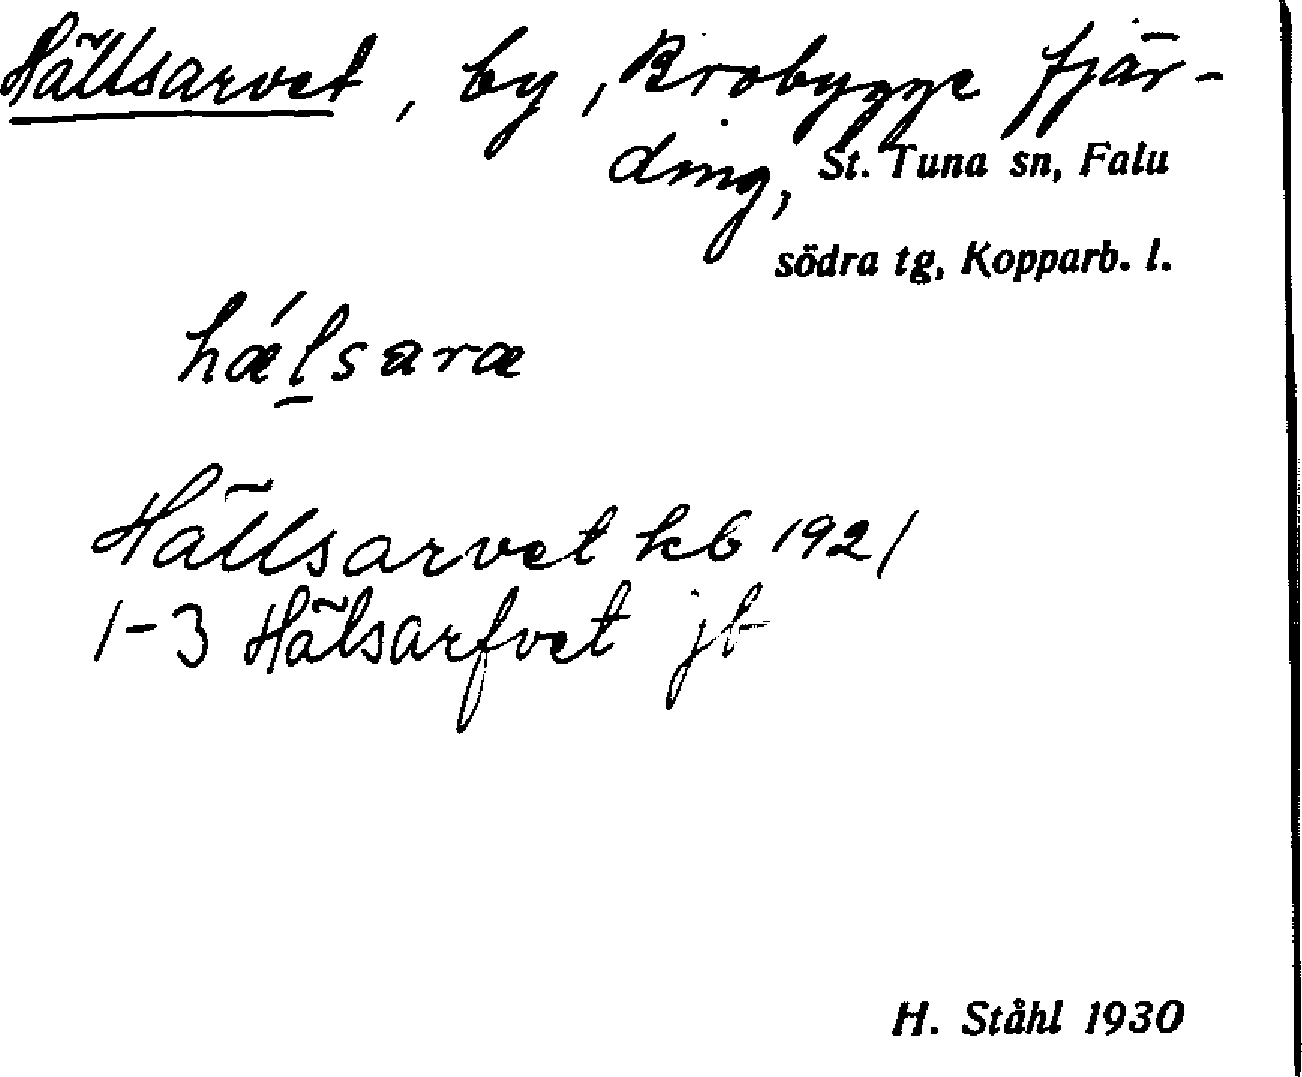 Hällsarvet, by, Brobygge fjär-
ding, St. Tuna sn, Falu
södra tg, Kopparb. l.
hælsaræ
Hällsarvet kb 1921
1-3 Hälsarfvet jb
H. Ståhl 1930